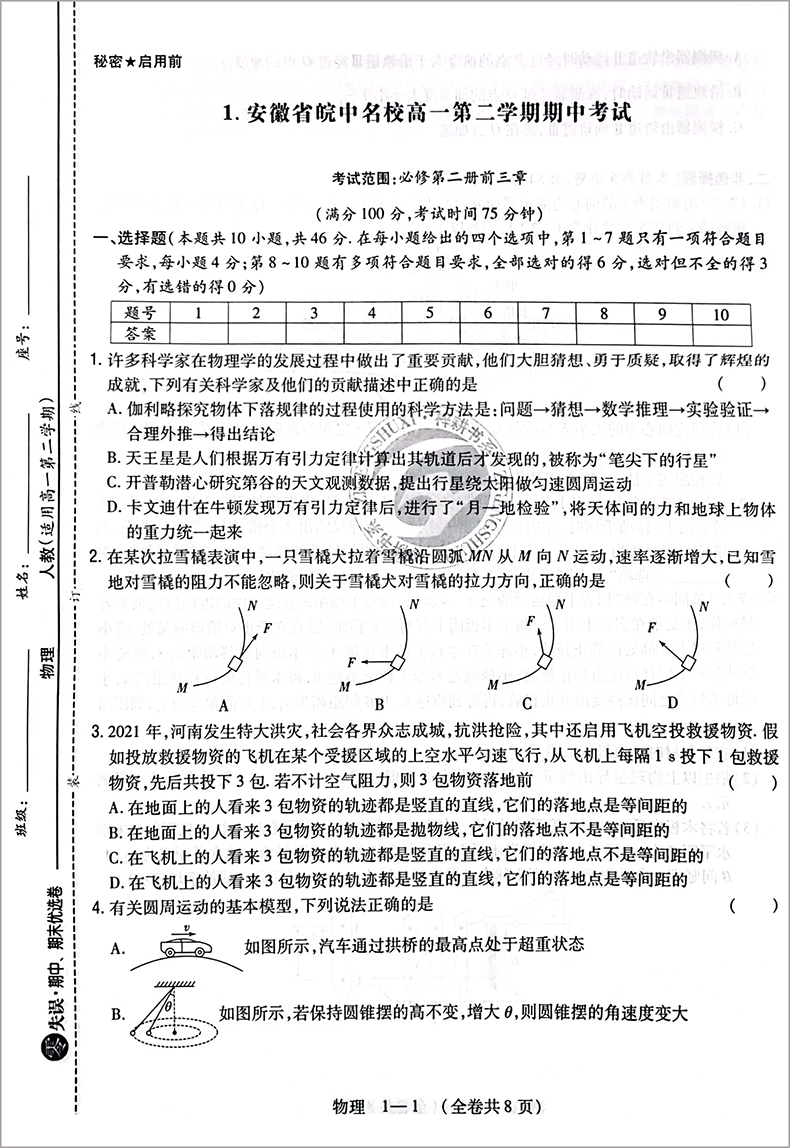 秘密★启用前
1.安徽省皖中名校高一第二学期期中考试
考试范围:必修第二册前三章
(满分100分,考试时间75分钟)
一、选择题(本题共10小题,共46分.在每小题给出的四个选项中,第1~7题只有一项符合题目
要求,每小题4分;第8~10题有多项符合题目要求,全部选对的得6分,选对但不全的得3
分,有选错的得0分)
题号 1 2 3 4 5 6 7 8 9 10
答案
1.许多科学家在物理学的发展过程中做出了重要贡献,他们大胆猜想、勇于质疑,取得了辉煌的
成就,下列有关科学家及他们的贡献描述中正确的是 ( )
A.伽利略探究物体下落规律的过程使用的科学方法是:问题→猜想→数学推理→实验验证→
合理外推→得出结论
B.天王星是人们根据万有引力定律计算出其轨道后才发现的,被称为“笔尖下的行星”
C.开普勒潜心研究第谷的天文观测数据,提出行星绕太阳做匀速圆周运动
D.卡文迪什在牛顿发现万有引力定律后,进行了“月—地检验”,将天体间的力和地球上物体
的重力统一起来
2.在某次拉雪橇表演中,一只雪橇犬拉着雪橇沿圆弧MN从M向N运动,速率逐渐增大,已知雪
地对雪橇的阻力不能忽略,则关于雪橇犬对雪橇的拉力方向,正确的是 ( )
N F M A
N F M B
N F M C
N F M D
3.2021年,河南发生特大洪灾,社会各界众志成城,抗洪抢险,其中还启用飞机空投救援物资.假
如投放救援物资的飞机在某个受援区域的上空水平匀速飞行,从飞机上每隔1s投下1包救援
物资,先后共投下3包.若不计空气阻力,则3包物资落地前 ( )
A.在地面上的人看来3包物资的轨迹都是竖直的直线,它们的落地点是等间距的
B.在地面上的人看来3包物资的轨迹都是抛物线,它们的落地点不是等间距的
C.在飞机上的人看来3包物资的轨迹都是竖直的直线,它们的落地点不是等间距的
D.在飞机上的人看来3包物资的轨迹都是竖直的直线,它们的落地点是等间距的
4.有关圆周运动的基本模型,下列说法正确的是 ( )
A. v 如图所示,汽车通过拱桥的最高点处于超重状态
B. θ 如图所示,若保持圆锥摆的高不变,增大θ,则圆锥摆的角速度变大
物理 1—1 (全卷共8页)
座号:
姓名:
班级:
人教(适用高一第二学期)
物理
零失误·期中、期末优选卷
线
订
装